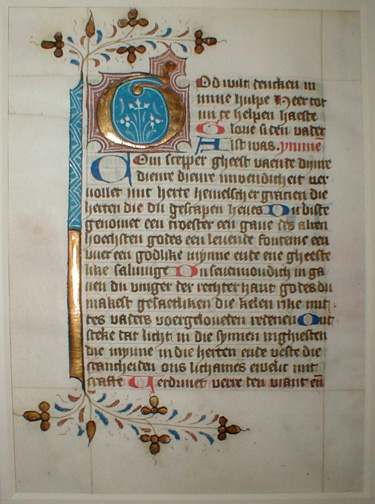 God wilt dencken in
mine hulpe Heer tot
mi te helpen haeste
Glorie si den vader
Alst was. ymme
Com scepper gheest vaente dijnre
dienre dienre inwendicheit ver
vollet mit herte hemelscher gracien die
herten die du gescapen heves Du biste
genoemet een troester een gave des alren
hoechsten godes een levende fonteine een
vuer een godlike mynne ende een gheeste
like salvinge Du sevenvoudich in ga
ven du vinger der rechter hant godes du
makest geestliken die kelen rike mit
tes vaders voergeloveden redenen Ont
steke dat licht in die sinnen inghiesten
die mynne in die herten ende veste die
crancheiden ons lichames ewelic mit
crafte Verdrivet verre den viant en